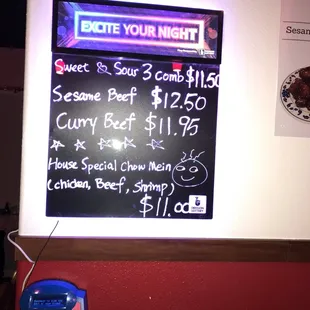 EXCITE YOUR NIGHT
Sweet & Sour 3 Comb $11.50
Sesame Beef $12.50
Curry Beef $11.95
House Special Chow Mein
(chicken, Beef, Shrimp)
$11.00
Sesam